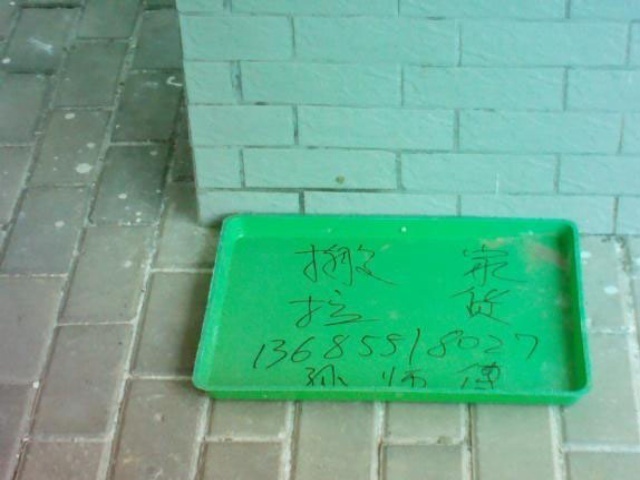 搬家
拉货
13685518027
孙师傅